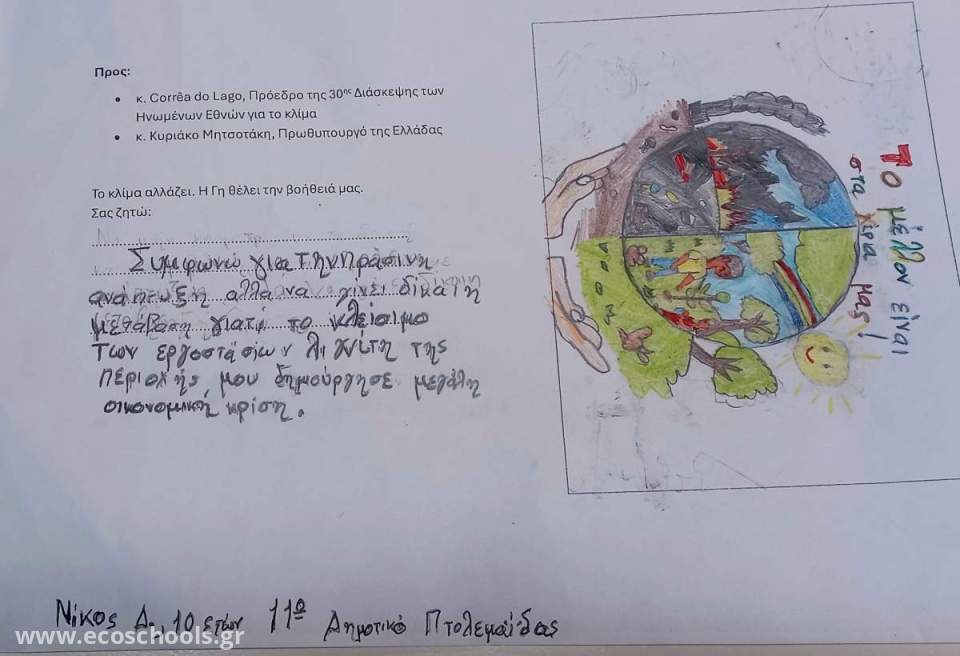 Προς:
• κ. Corrêa do Lago, Πρόεδρο της 30ης Διάσκεψης των
Ηνωμένων Εθνών για το κλίμα
• κ. Κυριάκο Μητσοτάκη, Πρωθυπουργό της Ελλάδας
Το κλίμα αλλάζει. Η Γη θέλει την βοήθειά μας.
Σας ζητώ:
Συμφωνώ για την πράσινη
ανάπτυξη αλλά να γίνει δίκαιη
μετάβαση γιατί το κλείσιμο
των εργοστάσιων λιγνίτη της
περιοχής μου δημούργησε μεγάλη
οικονομική κρίση.
Το μέλλον είναι
στα χέρια μας!
Νίκος Δ., 10 ετών 11ο Δημοτικό Πτολεμαΐδας
www.ecoschools.gr